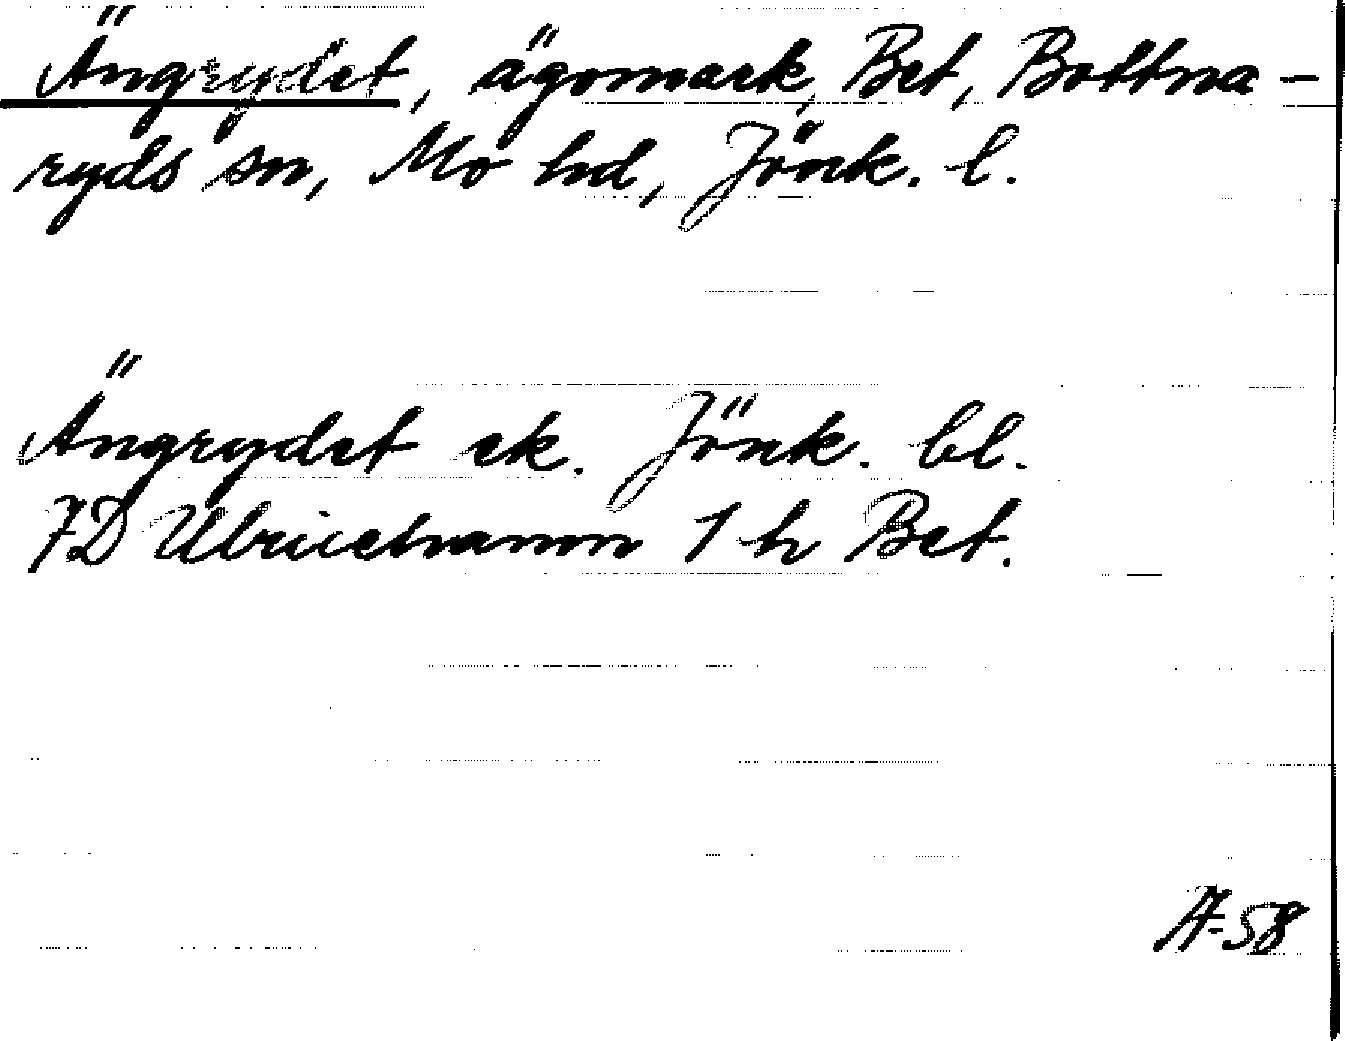 Ängrydet, ägomark, Bet, Bottna-
ryds sn, Mo hd, Jönk. l.
Ängrydet ek. Jönk. bl.
7D Ulricehamn 1 h Bet.
A-58